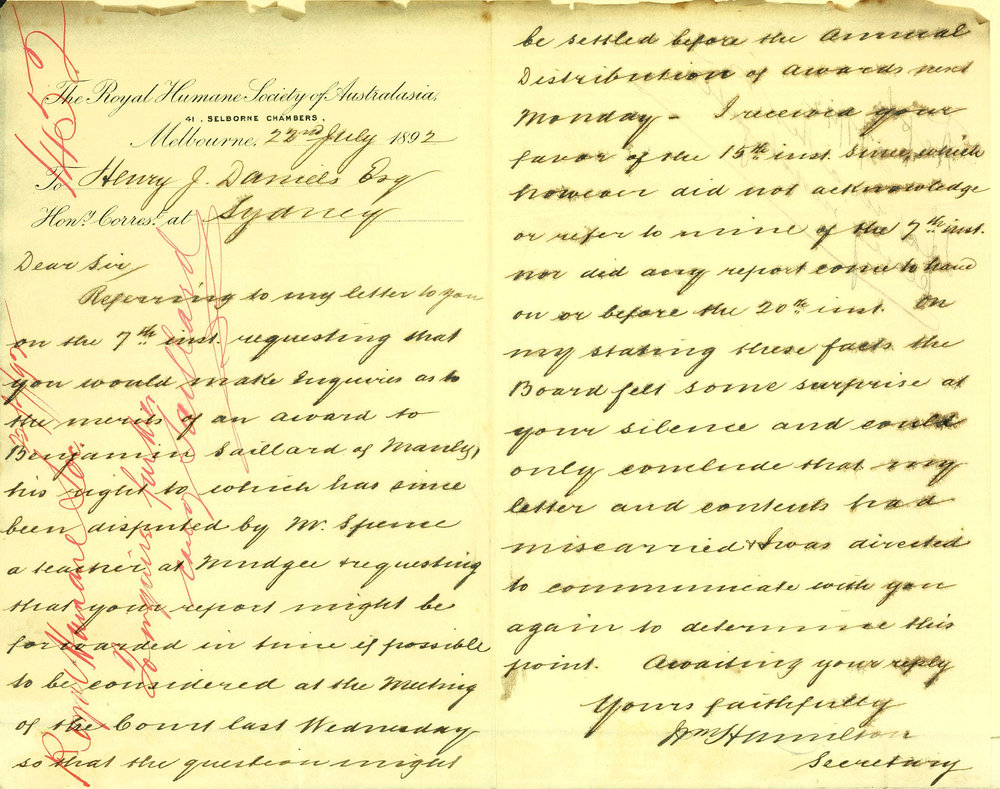 The Royal Humane Society of Australasia,
41, SELBORNE CHAMBERS,
Melbourne, 22nd July 1892
To Henry J. Daniels Esq
Hony. Corresp. at Sydney
Dear Sir
Referring to my letter to you
on the 7th inst. requesting that
you would make Enquiries as to
the merits of an award to
Benjamin Gaillard of Manly,
his right to which has since
been disputed by Mr. Spence
a teacher at Mudgee & requesting
that your report might be
forwarded in time if possible
to be considered at the Meeting
of the Court last Wednesday
so that the question might
be settled before the Annual
Distribution of Awards next
Monday - I received your
favor of the 15th inst. since, which
however did not acknowledge
or refer to mine of the 7th inst.
nor did any report come to hand
on or before the 20th inst. On
my stating these facts the
Board felt some surprise at
your silence and could
only conclude that my
letter and contents had
miscarried & I was directed
to communicate with you
again to determine this
point. Awaiting your reply
Yours faithfully
Wm Hamilton
Secretary
Royal Humane Soc.
Enquiring further
Gaillard